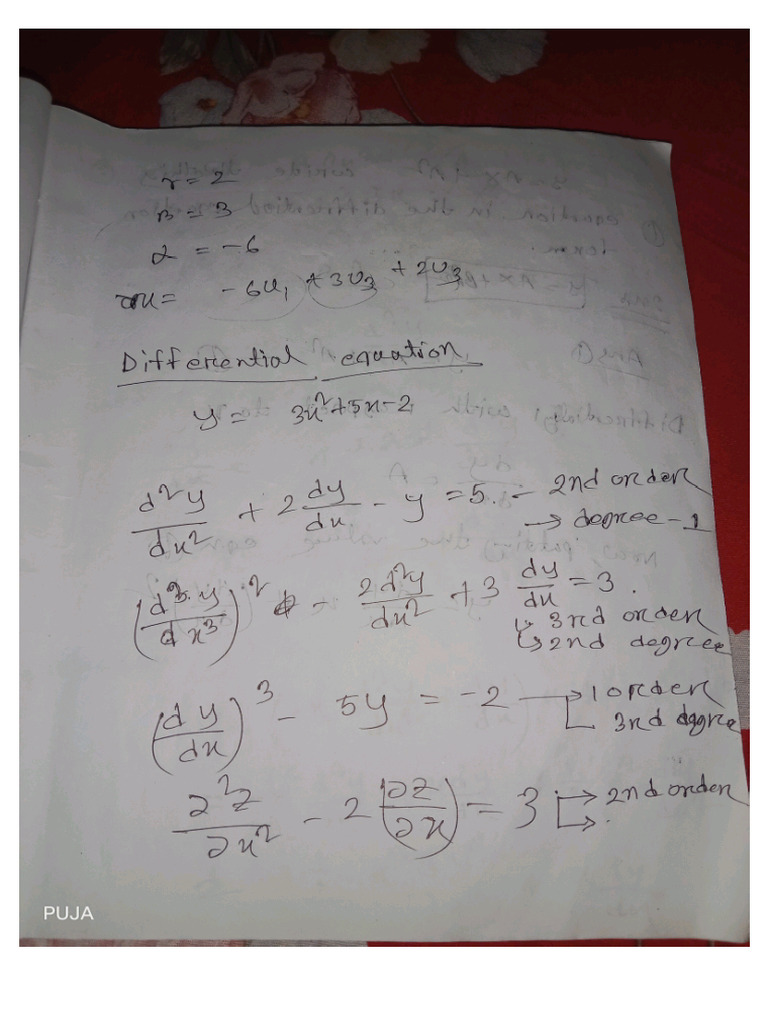 r = 2
β = 3
α = -6
= -6u₁ + 3u₃ + 2u₃
Differential equation
y = 3x² + 5x - 2
d²y/dx² + 2 dy/dx - y = 5. - 2nd order
→ degree - 1
(d³y/dx³)² - 2d²y/dx² + 3 dy/dx = 3.
↳ 3rd order
↳ 2nd degree
(dy/dx)³ - 5y = -2 → 1 order
3rd degree
∂²z/∂x² - 2 (∂z/∂x) = 3 → 2nd order
→ .
PUJA